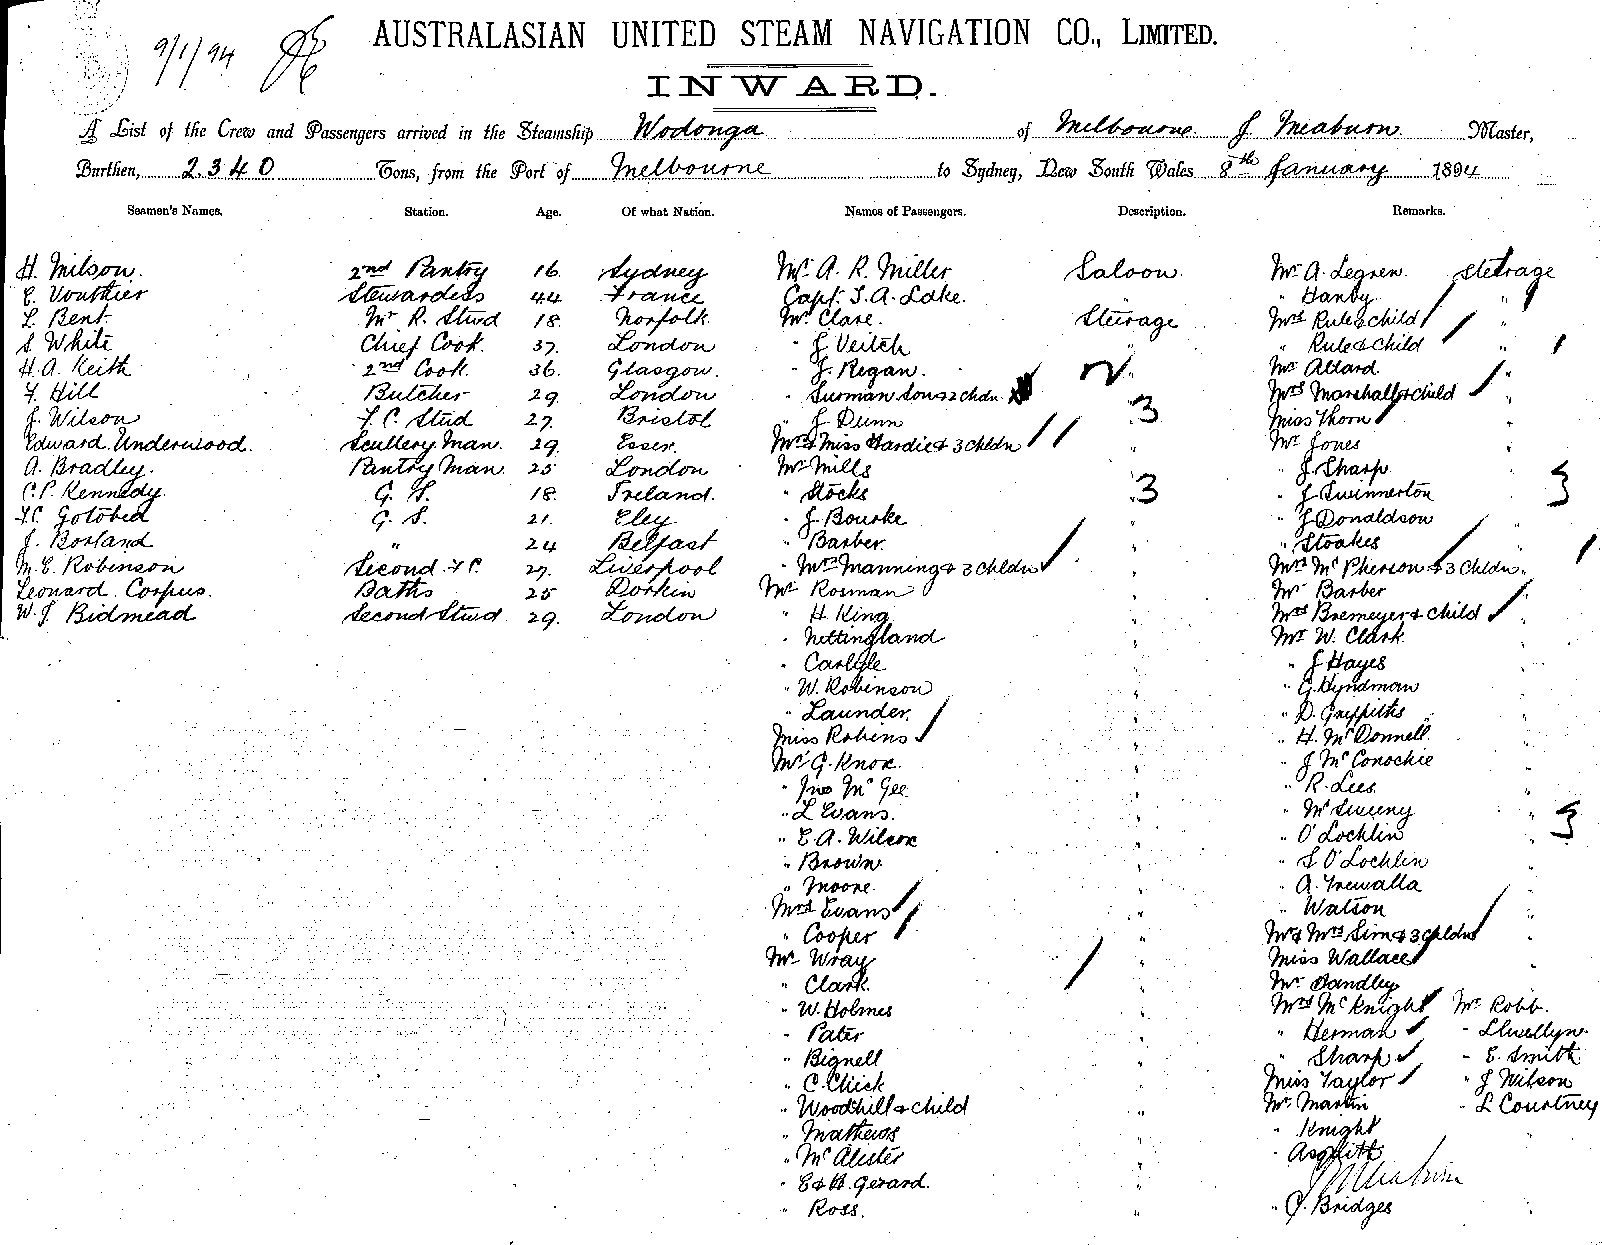 9/1/94
AUSTRALASIAN UNITED STEAM NAVIGATION CO., LIMITED.
INWARD.
A List of the Crew and Passengers arrived in the Steamship Wodonga of Melbourne. J Meaburn. Master,
Burthen, 2.340 Tons, from the Port of Melbourne to Sydney, New South Wales 8th January 1894
Seamen's Names. Station. Age. Of what Nation. Names of Passengers. Description. Remarks.
H. Milson. 2nd Pantry 16. Sydney
E. Vouthier Stewardess 44 France
L. Bent. Mr R. Stwd 18. Norfolk
S. White Chief Cook. 37. London
H. A. Keith 2nd Cook. 36. Glasgow.
F. Hill Butcher 29. London
J. Wilson F.C. Stwd 27. Bristol
Edward. Underwood. Scullery Man. 29. Essex.
A. Bradley. Pantry Man. 25 London
C.P. Kennedy. G. S. 18. Ireland.
F.C. Gotobed G. S. 21. Eley
J. Borland " 24 Belfast
M. E. Robinson Second F.C. 27. Liverpool
Leonard. Corpus. Baths 25 Dorkin
W. J. Bidmead Second Stwd 29. London
Mr. A. R. Miller Saloon.
Capt. J. A. Lake.
Mr. Clare. Steerage
" J. Veitch
" J. Regan.
" Surman Son & 2 Chdn
" J Dunn 3
Mrs & Miss Hardie & 3 Chldn
Mr Mills
" Stocks 3
" J. Bourke
" Barber.
" Mrs Manning & 3 Chldn
Mr Rosman
" H King
" Nettingland
" Carlyle
" W. Robinson
" Launder.
Miss Robins
Mr G. Knox.
" Jno McGee
" L Evans.
" E. A. Wilcox
" Brown
" Moore.
Mrs Evans
" Cooper
Mr Wray
" Clark.
" W. Holmes
" Pater
" Bignell
" C. Chick
" Woodhill & Child
" Mathews
" McAlister
" E & H. Gerard.
" Ross.
Mr A. Legren. Steerage
" Handy
Mrs Rule & Child
" Rule & Child
Mr Allard.
Mrs Marshall & Child
Miss Thorn
Mr Jones
" J. Sharp
" J Swinnerton
" J Donaldson
" Stoakes
Mrs McPherson & 3 Chldn.
Mr Barber
Mrs Bremeyer & Child
Mr W. Clark.
" J Hayes
" G. Hyndman
" D. Griffiths
" H. McDonnell.
" J McConochie
" R. Lees
" McSweeny
" O'Lochlin
" S O'Lochlin
" A. Trewalla
" Watson
Mr & Mrs Sim & 3 Chldn
Miss Wallace
Mr Dandley
Mrs McKnight Mr Robb.
" Herman " Llwellyn
" Sharp " E. Smith
Miss Taylor " J Wilson
Mr Martin " L Courtney
" Knight
" Asquith
J Meaburn
" J. Bridges